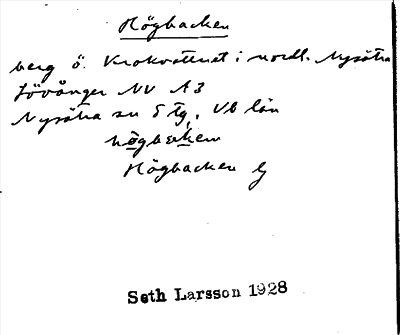 Högbacken
berg ö. Krokvattnet i nordl. Nysätra
Lövånger NV A3
Nysätra sn S tg, Vb län
högbakken
Högbacken G
Seth Larsson 1928